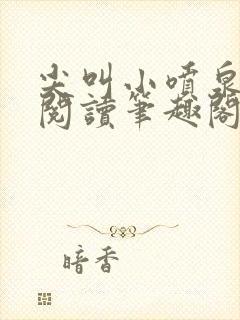 尖叫小噴泉
閱讀筆趣閣
暗香